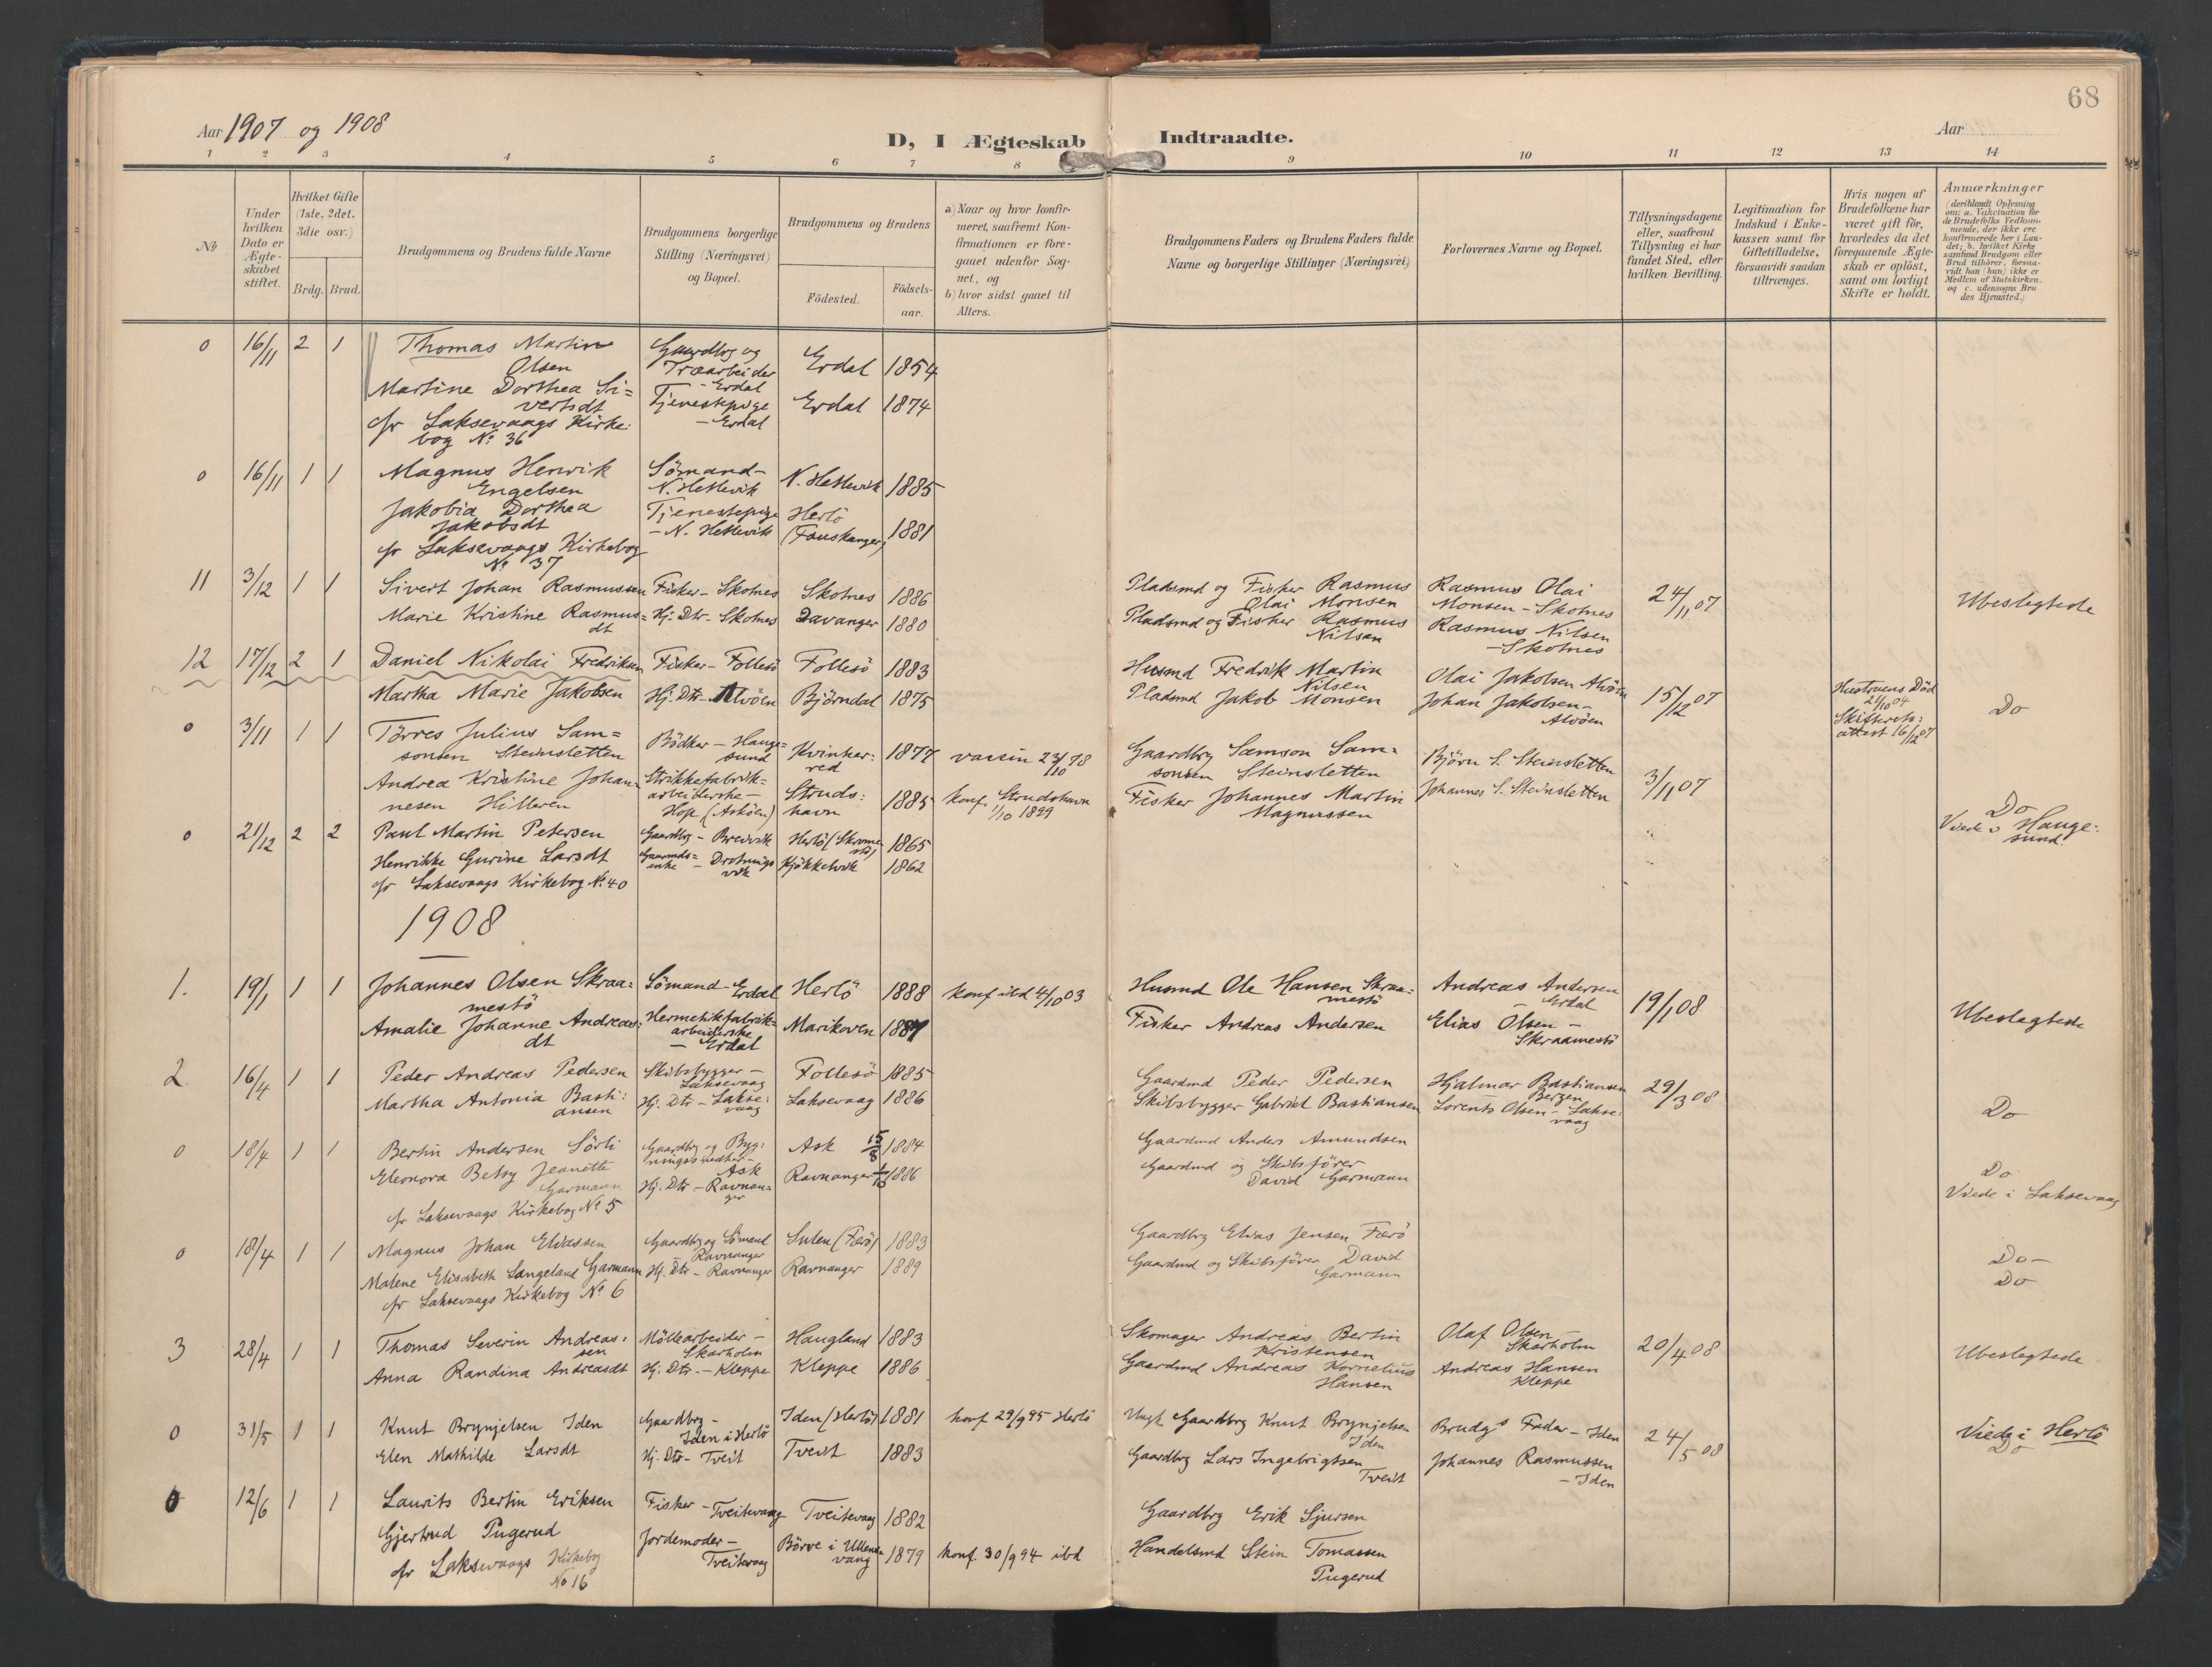 68
Aar 1907 og 1908
D, I Ægteskab Indtraadte.
Aar
1 2 3 4 5 6 7 8 9 10 11 12 13 14
No
Under hvilken Dato er Ægte-skabet stiftet.
Hvilket Gifte (1ste, 2det, 3die osv.)
Brdg. Brud.
Brudgommens og Brudens fulde Navne
Brudgommens borgerlige Stilling (Næringsvei) og Bopæl.
Brudgommens og Brudens
Födested.
Födsels-aar.
a) Naar og hvor konfir-meret, saafremt Kon-firmationen er fore-gaaet udenfor Sog-net, og
b) hvor sidst gaaet til Alters.
Brudgommens Faders og Brudens Faders fulde Navne og borgerlige Stillinger (Næringsvei)
Forlovernes Navne og Bopæl.
Tillysningsdagene eller, saafremt Tillysning ei har fundet Sted, efter hvilken Bevilling.
Legitimation for Indskud i Enke-kassen samt for Giftetilladelse, forsaavidt saadan tiltrænges.
Hvis nogen af Brudefolkene har været gift før, hvorledes da det foregaaende Ægte-skab er oplöst, samt om lovligt Skifte er holdt.
Anmærkninger (deriblandt Oplysning om: a. Vakcination for de Brudefolks Vedkom-mende, der ikke ere konfirmerede her i Lan-det; b. hvilket Kirke samfund Brudgom eller Brud tilhörer, forsaa-vidt han (hun) ikke er Medlem af Statskirken, og c. udensogns Bru des Hjemsted.)
0 16/11 2 1 Thomas Martin Gaardbrg og Erdal 1854
Olsen Træarbeider
Martine Dorthea Si= - Erdal
vertsdt Tjenestepige Erdal 1874
cfr Laksevaags Kirke: - Erdal
bog No 36
0 16/11 1 1 Magnus Henrik Sömand- N. Hetlevik 1885
Engelsen N. Hetlevik
Jakobia Dorthea Tjenestepige Herlö
Jakobsdt - N. Hetlevik (Fauskanger) 1881
cfr Laksevaags Kirkebog
No 37
11 3/12 1 1 Sivert Johan Rasmussen Fisker - Skotnes Skotnes 1886 Pladsmd og Fisker Rasmus Rasmus Olai 24/11 07
Olai Monsen Monsen - Skotnes Ubeslegtede
Marie Kristine Rasmus= Hj. Dtr. Skotnes Davanger 1880 Pladsmd og Fisker Rasmus Rasmus Nilsen
dt Nilsen - Skotnes
12 17/12 2 1 Daniel Nikolai Fredriksen Fisker - Follesö Follesö 1883 Husmd Fredrik Martin Olai Jakobsen Alvöen
Nilsen 15/12 07 Hustruens Död
Martha Marie Jakobsen Hj. Dtr - Alvöen Björndal 1875 Pladsmd Jakob Monsen Johan Jakobsen - 21/10 04 Do
Alvöen Skifterets:
attest 16/12 07
0 3/11 1 1 Törres Julius Sam= Bödker - Hauge= Kvinher: 1877 vaccin 23/10 78 Gaardbrg Samson Sam= Björn S. Steinsletten
sonsen Steinsletten sund red sonsen Steinsletten
Andrea Kristine Johan= Strikkefabrik= Struds: 1885 konf. Strudshavn Fisker Johannes Martin Johannes S. Steinsletten 3/11 07
nesen Hilleren arbeiderske - havn 1/10 1899 Magnussen Do
Hop (Asköen) Viede i Hauge:
sund.
0 21/12 2 2 Paul Martin Petersen Gaardbrg - Bredvik Herlö (Skrame 1865
stö)
Henrikke Gurine Larsdt Gaarmds= Kjökkelvik 1862
enke - Drotnings
vik
cfr Laksevaags Kirkebog No. 40
1908
1. 19/1 1 1 Johannes Olsen Skraa= Sömand - Erdal Herlö 1888 konf ibd 4/10 03 Husmd Ole Hansen Skraa= Andreas Andersen
mestö mestö - Erdal 19/1 08
Amalie Johanne Andreas: Hermetikfabrik= Marikoven 1887 Fisker Andreas Andersen Elias Olsen - Ubeslegtede
dt arbeiderske Skraamestö
- Erdal
2. 16/4 1 1 Peder Andreas Pedersen Skibsbygger - Follesö 1885 Gaardmd Peder Pedersen Hjalmar Bastiansen 29/3 08
Laksevaag Bergen
Martha Antonia Basti: Hj. Dtr - Lakse: Laksevaag 1886 Skibsbygger Gabriel Bastiansen Lorents Olsen - Lakse: Do
ansen vaag vaag
0 18/4 1 1 Bertin Andersen Sörli Gaardbrg og Byg: Ask 15/8 1884 Gaardmd Anders Amundsen
Eleonora Betsy Jeanette Ask Gaardmd og Skibsförer Do
Garmann Hj. Dtr - Ravnan= Ravnanger 1886 David Garmann Viede i Laksevaag
ger
cfr Laksevaags Kirkebog No 5
0 18/4 1 1 Magnus Johan Eliassen Gaardbrg og Sömand Sulen (Færö) 1883 Gaardbrg Elias Jensen Færö
Ravnanger Do -
Malene Elisabeth Langeland Garmann Hj. Dtr - Ravnanger Ravnanger 1889 Gaardmd og Skibsförer David Do
Garmann
cfr Laksevaags Kirkebog No 6
3 28/4 1 1 Thomas Severin Andreas: Möllearbeider - Haugland 1883 Skomager Andreas Bertin Olaf Olsen - 20/4 08
sen Skarholm Kristensen Skarholm Ubeslegtede
Anna Randina Andreasdt Hj. Dtr. - Kleppe Kleppe 1886 Gaardmd Andreas Kornelius Andreas Hansen
Hansen Kleppe
0 31/5 1 1 Knut Brynjelsen Iden Gaardbrg - Iden (Herlö) 1881 konf 29/9 95 Herlö Ungk Gaardbrg Knut Brynjelsen Brudgs Fader - Iden 24/5 08 Viede i Herlö
Iden i Herlö Iden Do
Elen Mathilde Larsdt Hj. Dtr - Tveit Tveit 1883 Gaardbrg Lars Ingebrigtsen Johannes Rasmussen
Tveit - Iden
0 12/6 1 1 Laurits Bertin Eriksen Fisker - Tveitevaag Tveitevaag 1882 Gaardbrg Erik Sjursen
Gjertrud Pugerud Jordemoder - Börve i Ullens 1879 konf. 30/9 94 ibd Handelsmd Stein Tomassen
Tveitevaag vang Pugerud
cfr Laksevaags Kirkebog
No 16